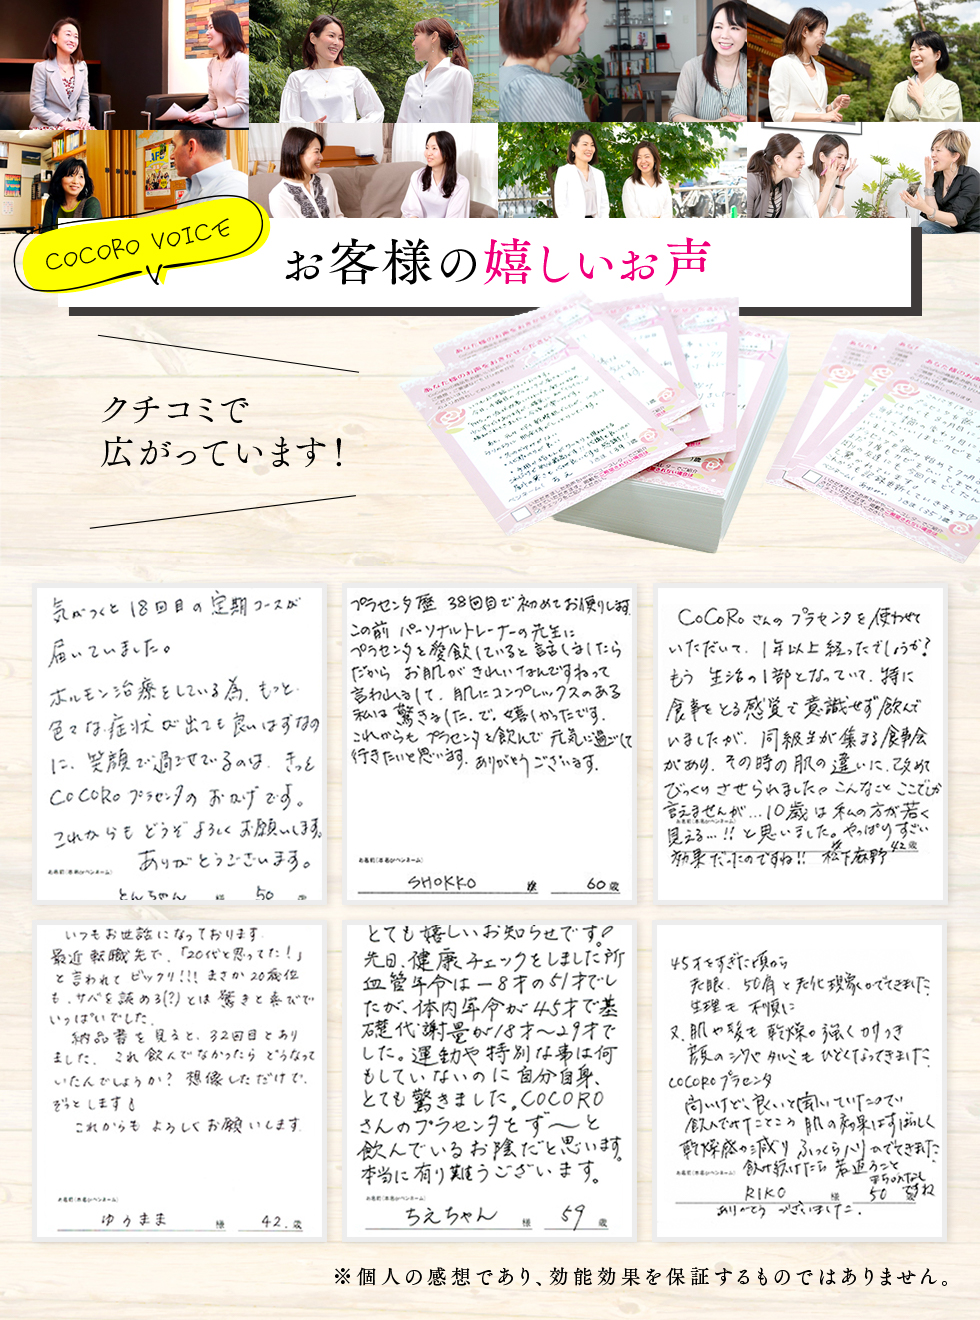 COCORO VOICE
お客様の嬉しいお声
クチコミで
広がっています!
あなた様のお声をおきかせください
気がつくと18回目の定期コースが
届いていました。
ホルモン治療をしている為、もっと
色々な症状が出ても良いはずなの
に、笑顔で過ごせているのは、きっと
COCOROプラセンタのおかげです。
これからもどうぞよろしくお願いします。
ありがとうございます。
お名前(本名orペンネーム)
とんちゃん 様 50 歳
プラセンタ歴 38回目で初めてお便りします。
この前 パーソナルトレーナーの先生に
プラセンタを愛飲していると話しましたら
だから お肌がきれいなんですねって
言われまして、肌にコンプレックスのある
私は驚きました。で、嬉しかったです。
これからもプラセンタを飲んで元気に過ごして
行きたいと思います。ありがとうございます。
お名前(本名orペンネーム)
SHOKKO 様 60 歳
CoCoRoさんのプラセンタを使わせて
いただいて、1年以上経ったでしょうか?
もう 生活の1部となっていて、特に
食事をとる感覚で意識せず飲んで
いましたが、同級生が集まる食事会
があり、その時の肌の違いに、改めて
びっくりさせられました。こんなこと ここでしか
言えませんが…10歳は私の方が若く
お名前(本名orペンネーム)
見える…!!と思いました。やっぱりすごい
効果だったのですね!! 松下麻野 42歳
いつもお世話になっております。
最近転職先で、「20代と思ってた!」
と言われてビックリ!!! まさか20歳位
も、サバを読める(?)とは驚きと喜びで
いっぱいでした。
納品書を見ると、32回目とあり
ました。これ飲んでなかったらどうなって
いたんでしょうか? 想像しただけで、
ぞっとします
これからも よろしくお願いします。
お名前(本名orペンネーム)
ゆうまま 様 42. 歳
とても嬉しいお知らせです。
先日、健康チェックをしました所
血管年令は-8才の51才でし
たが、体内年令が45才で基
礎代謝量が18才〜29才で
した。運動や特別な事は何
もしていないのに自分自身、
とても驚きました。COCORO
さんのプラセンタをず〜と
飲んでいるお陰だと思います。
本当に有り難うございます。
お名前(本名orペンネーム)
ちえちゃん 様 59 歳
45才をすぎた頃から
老眼、50肩と老化現象がでてきました。
生理も不順に
又、肌や髪も乾燥が強くカサつき
顔のシワやタルミもひどくなってきました。
COCOROプラセンタ
向いけど、良いと聞いていたので
飲んでみたところ 肌の効果はすばらしく
乾燥感の減り ふっくらハリのでてきました
お名前(本名orペンネーム)
飲み続けたら 若返ること
まちがいなし
RIKO 様 50 ですね
ありがとう ございました。
※個人の感想であり、効能効果を保証するものではありません。